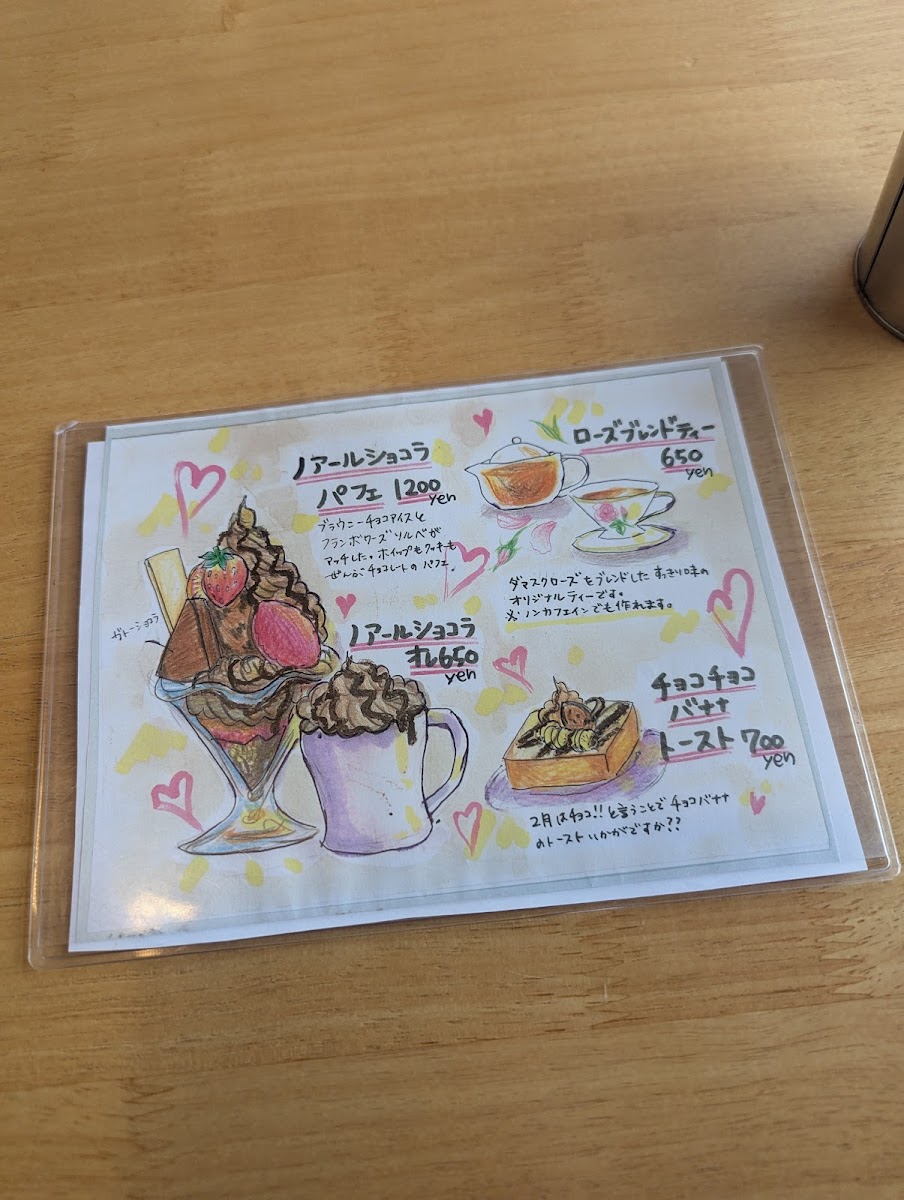 ノアールショコラ
パフェ 1200
yen
ブラウニーチョコアイスと
フランボワーズソルベが
マッチした。ホイップもクッキーも
ぜんぶチョコレートのパフェ。
ガトーショコラ
ノアールショコラ
オレ650
yen
ローズブレンドティー
650
yen
ダマスクローズもブレンドしたすっきり味の
オリジナルティーです。
※ノンカフェインでも作れます。
チョコチョコ
バナナ
トースト 700
yen
2月はチョコ!!と言うことでチョコバナナ
のトーストいかがですか??